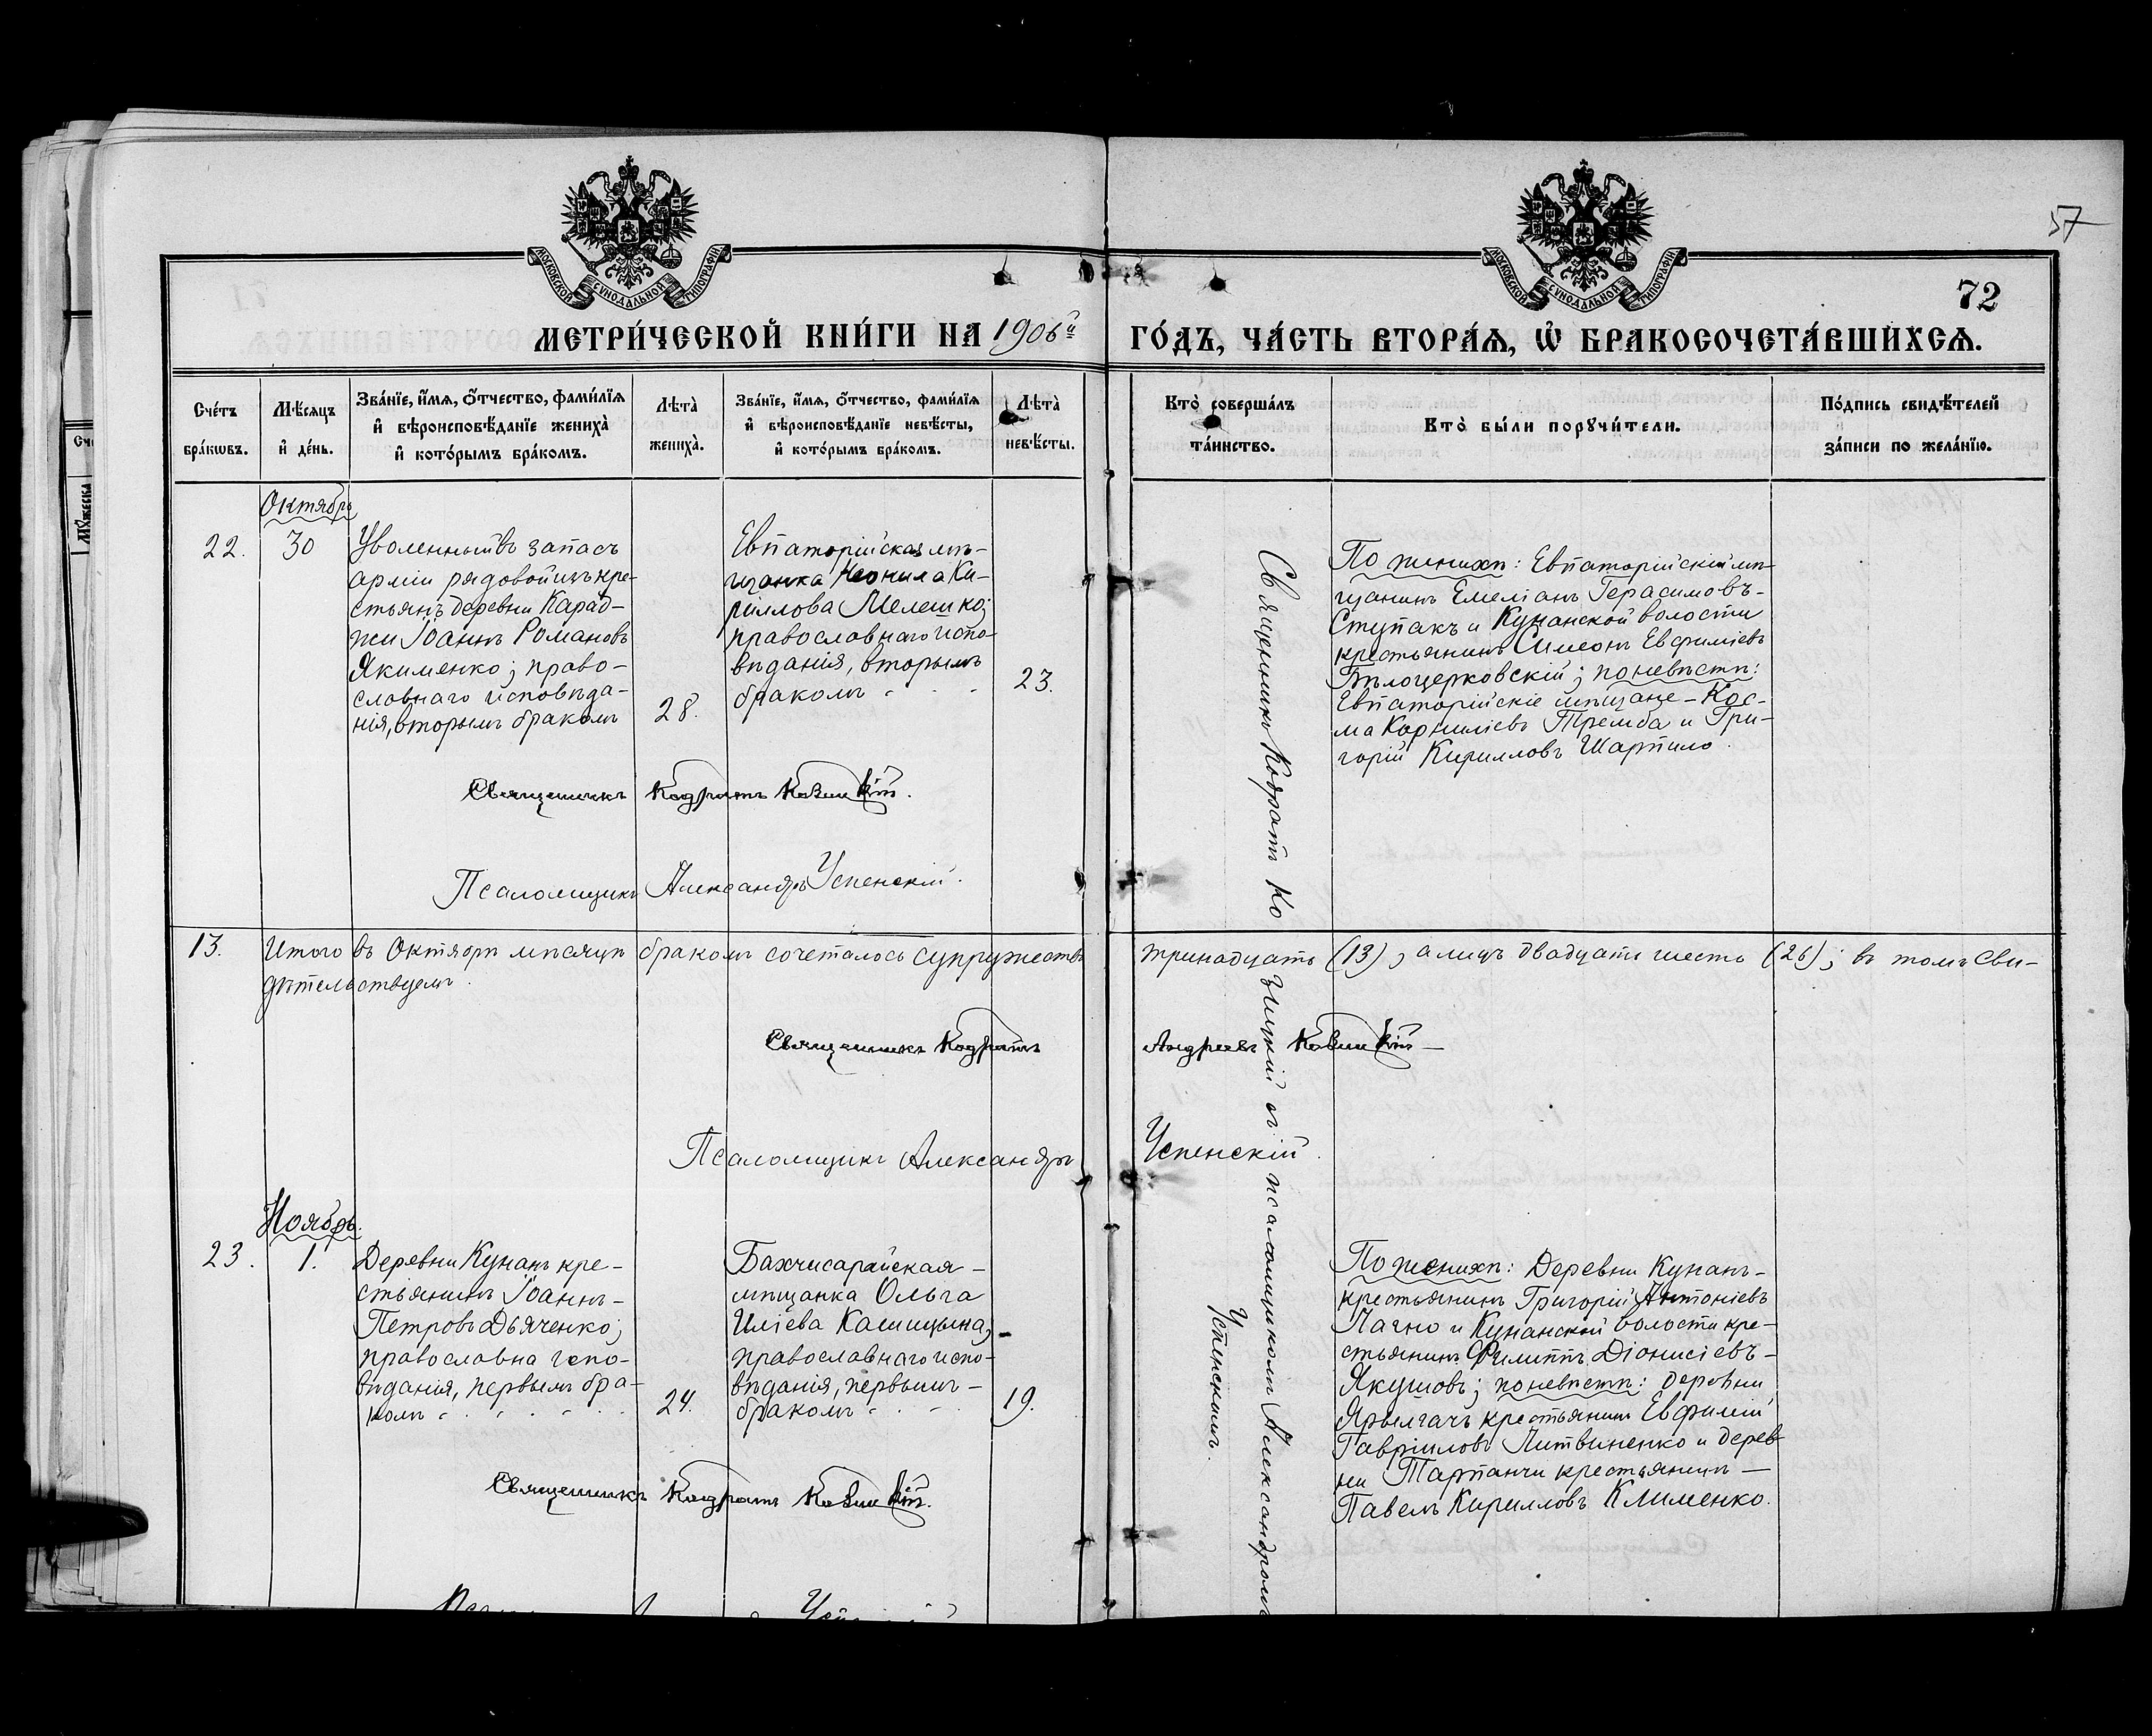 57
72
МОСКОВСКОЙ СѴНОДАЛЬНОЙ ТИПОГРАФІИ
МОСКОВСКОЙ СѴНОДАЛЬНОЙ ТИПОГРАФІИ
МЕТРИ́ЧЕСКОЙ КНИ́ГИ НА 1906й ГО́ДЪ, ЧА́СТЬ ВТОРА́Ѧ, Ѡ҆ БРАКОСОЧЕТА́ВШИХСѦ.
Сче́тъ
бра́кωвъ.
Мѣ́сяцъ
и҆ де́нь.
Зва́нїе, и҆́мѧ, ѻ҆́тчество, фами́лїѧ
и҆ вѣроисповѣ́данїе жениха̀
и҆ кото́рымъ бра́комъ.
Лѣта̀
жениха̀.
Зва́нїе, и҆́мѧ, ѻ҆́тчество, фами́лїѧ
и҆ вѣроисповѣ́данїе невѣ́сты,
и҆ кото́рымъ бра́комъ.
Лѣта̀
невѣ́сты.
Кто̀ соверша́лъ
та́инство.
Кто̀ бы́ли порꙋчи́тели.
По́дпись свидѣ́телей
за́писи по жела́нїю.
Октябрь
22.
30
Уволенный въ запасъ
арміи рядовой изъ кре-
стьянъ деревни Карад-
жи Іоаннъ Романовъ
Якименко; право-
славнаго исповѣда-
нія, вторымъ бракомъ
28.
Евпаторійская мѣ-
щанка Неонила Ки-
риллова Мелешко;
православнаго испо-
вѣданія, вторымъ
бракомъ
23.
Священникъ Кодратъ Ко
зицкій съ псаломщикомъ Александромъ
Успенскимъ.
По женихѣ: Евпаторійскій мѣ-
щанинъ Емеліанъ Герасимовъ-
Ступакъ и Кунанской волости
крестьянинъ Симеонъ Евфиміевъ
Бѣлоцерковскій; по невѣстѣ:
Евпаторійскіе мѣщане - Кос-
ма Корниліевъ Тремба и Гри-
горій Кирилловъ Шарпило.
Священникъ Кодратъ Козицкій.
Псаломщикъ Александръ Успенскій.
13.
Итого въ Октябрѣ мѣсяцѣ бракомъ сочеталось супружествъ тринадцать (13), а лицъ двадцати шесть (26); въ томъ сви-
дѣтельствуемъ.
Священникъ Кодратъ Андреевъ Козицкій
Псаломщикъ Александръ Успенскій.
Ноябрь.
23.
1.
Деревни Кунанъ кре-
стьянинъ Іоаннъ-
Петровъ Дьяченко;
православна испо-
вѣданія, первымъ бра-
комъ
24.
Бахчисарайская -
мѣщанка Ольга
Иліева Камицына;
православнаго испо-
вѣданія, первымъ -
бракомъ
19.
По женихѣ: Деревни Кунанъ-
крестьянинъ Григорій Антоніевъ
Лагно и Кунанской волости кре-
стьянинъ Филиппъ Діонисіевъ-
Якушовъ; по невѣстѣ: деревни
Ярылгачъ крестьянин Евфимій
Гавріиловъ Литвиненко и дерев
ни Тарпанчи крестьянинъ —
Павелъ Кирилловъ Клименко.
Священникъ Кодратъ Козицкій.